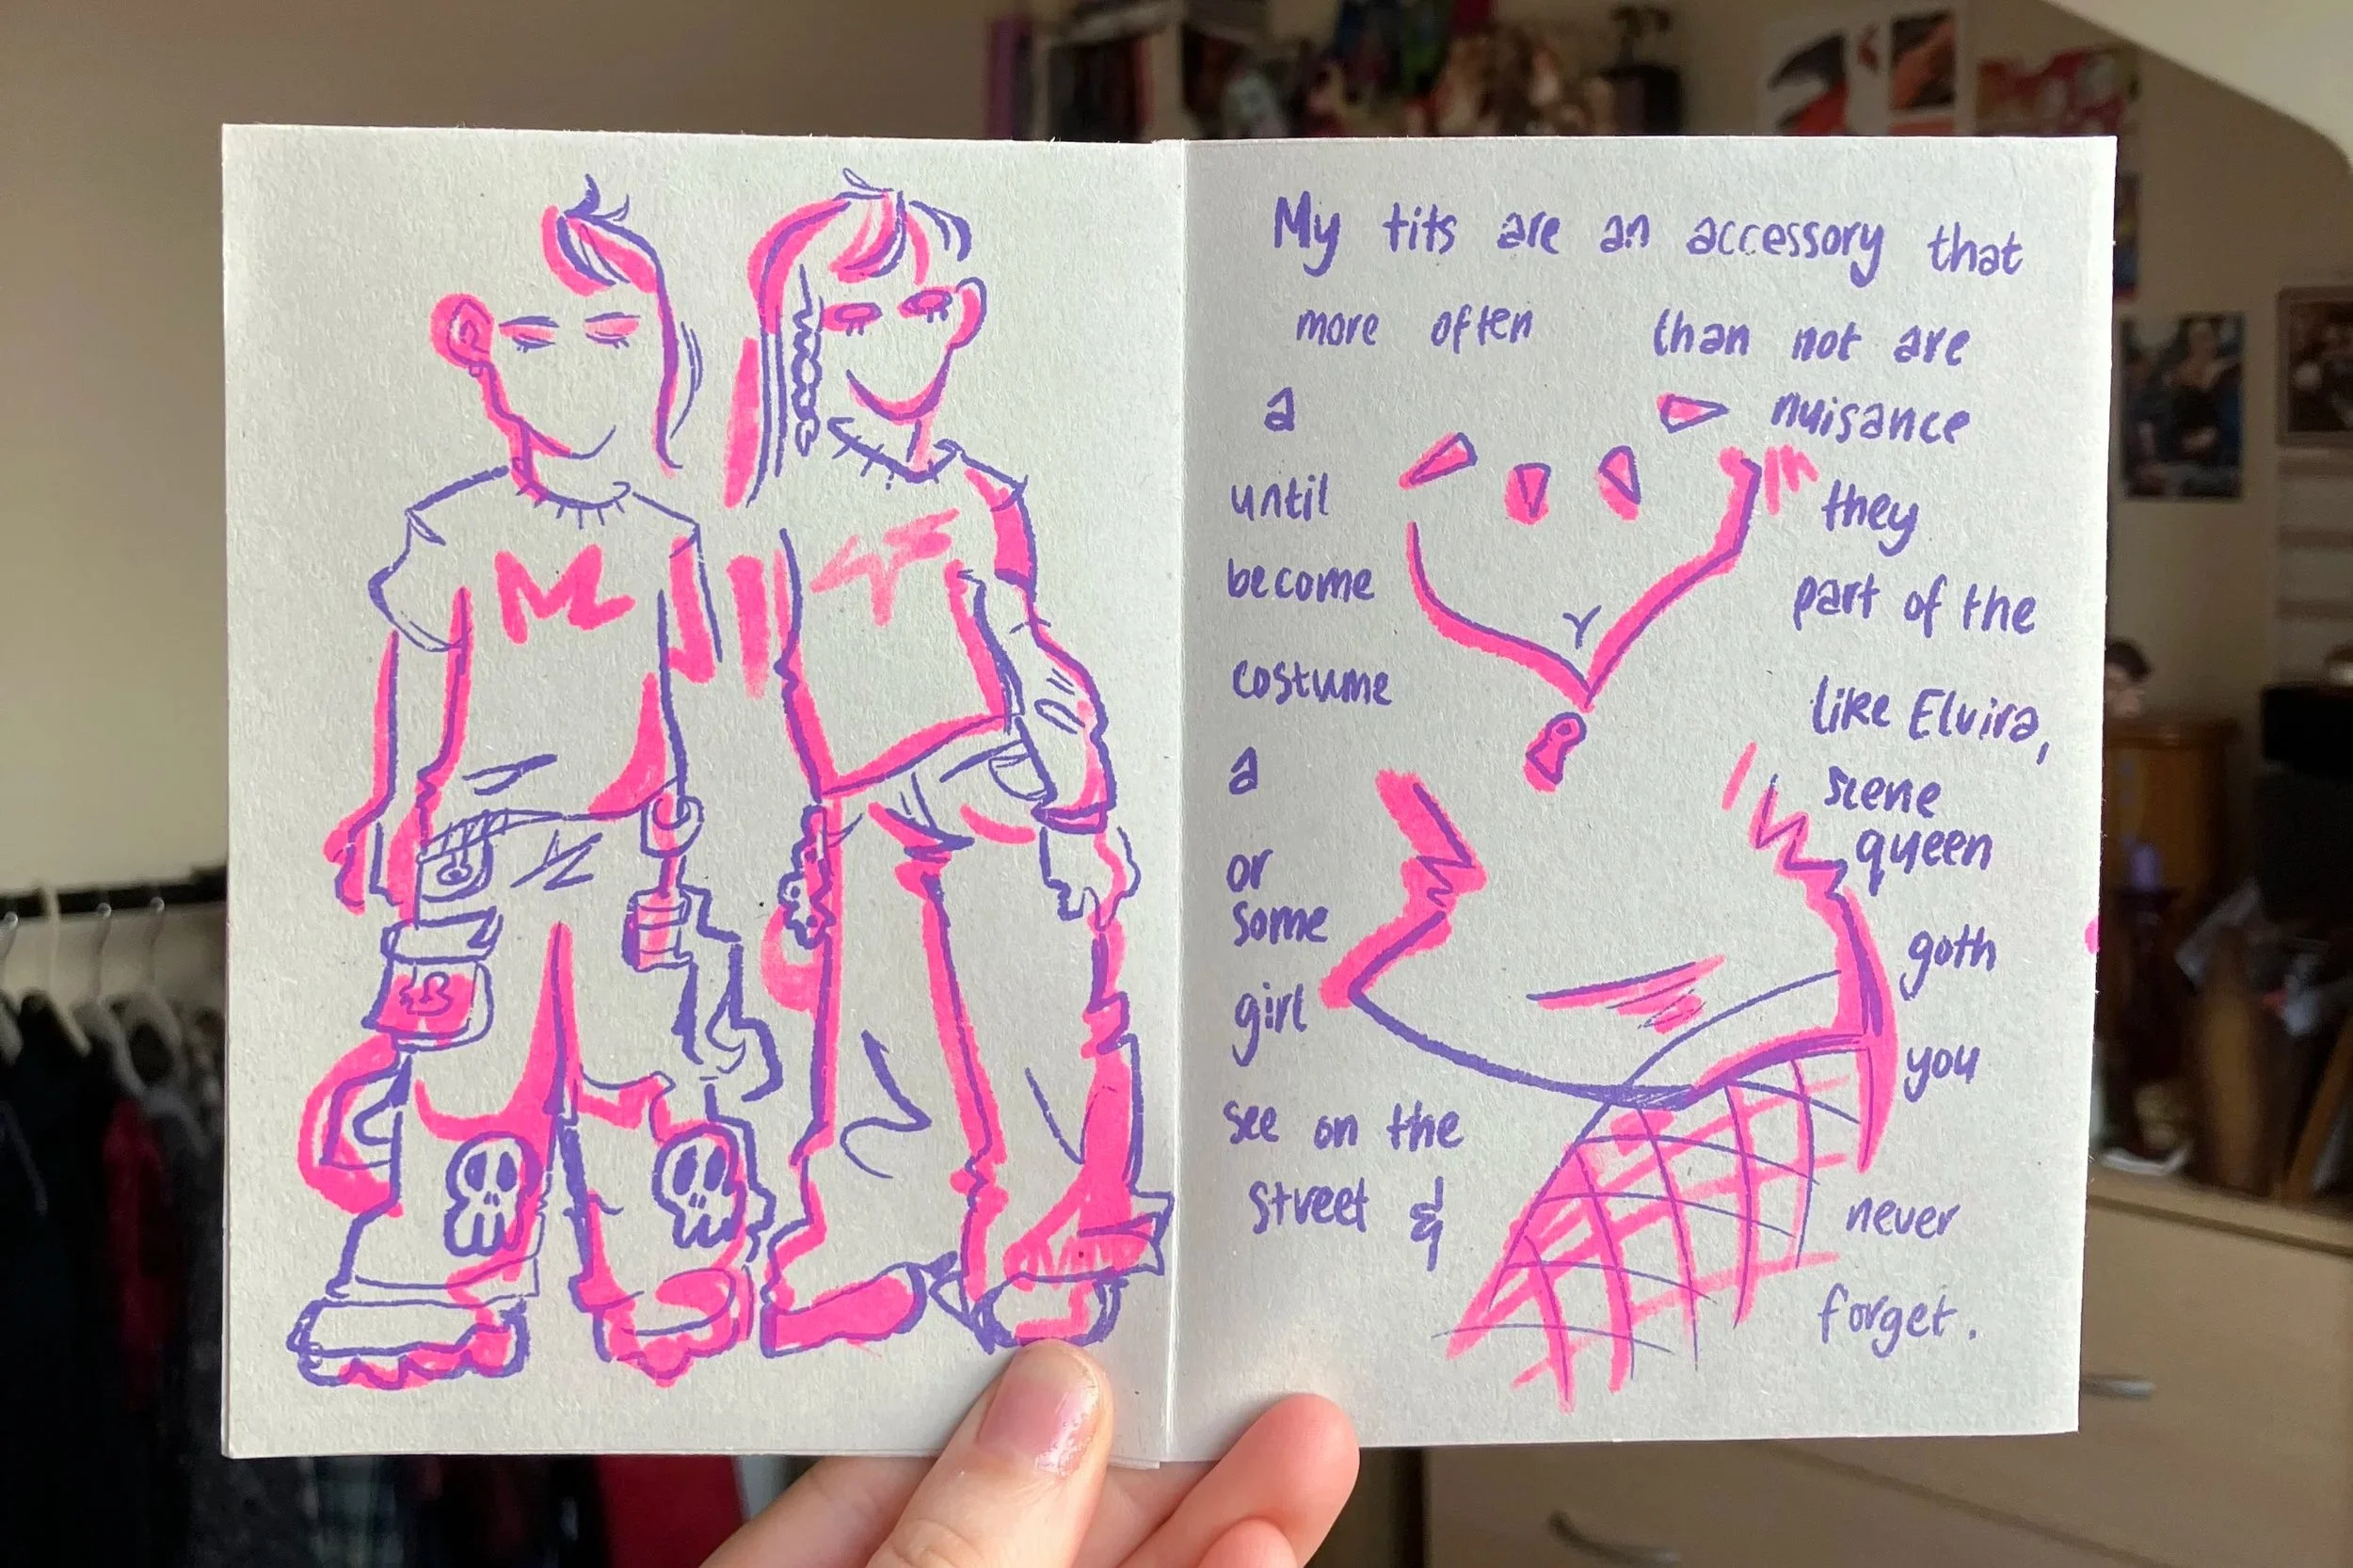 My tits are an accessory that
more often than not are
a nuisance
until they
become part of the
costume like Elvira,
a scene
queen
or
some goth
girl you
see on the
street & never
forget.